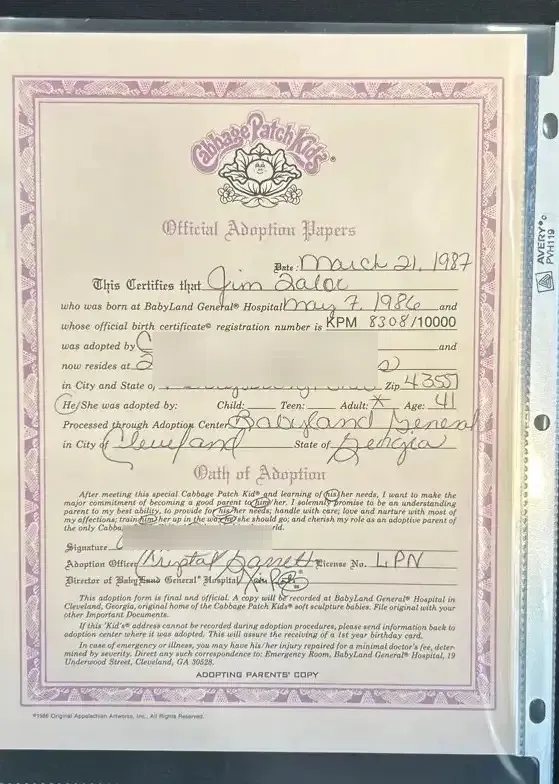 Cabbage Patch Kids®
Official Adoption Papers
Date: March 21, 1987
This Certifies that Jim
who was born at BabyLand General® Hospital May 7, 1986 and
whose official birth certificate© registration number is KPM 8308/10000
was adopted by and
now resides at
in City and State of Zip 43551
He/She was adopted by: Child: Teen: Adult: X Age: 41
Processed through Adoption Center Babyland General
in City of Cleveland State of Georgia
Oath of Adoption
After meeting this special Cabbage Patch Kid® and learning of his/her needs, I want to make the
major commitment of becoming a good parent to him/her. I solemnly promise to be an understanding
parent to my best ability, to provide for his/her needs; handle with care; love and nurture with most of
my affections; train him/her up in the way he/she should go; and cherish my role as an adoptive parent of
the only Cabba rld.
Signature
Adoption Officer Krystal Garrett License No. LPN
Director of BabyLand General® Hospital
This adoption form is final and official. A copy will be recorded at BabyLand General® Hospital in
Cleveland, Georgia, original home of the Cabbage Patch Kids® soft sculpture babies. File original with your
other Important Documents.
If this 'Kid's® address cannot be recorded during adoption procedures, please send information back to
adoption center where it was adopted. This will assure the receiving of a 1st year birthday card.
In case of emergency or illness, you may have his/her injury repaired for a minimal doctor's fee, deter-
mined by severity. Direct any such correspondence to: Emergency Room, BabyLand General® Hospital, 19
Underwood Street, Cleveland, GA 30528.
ADOPTING PARENTS' COPY
©1986 Original Appalachian Artworks, Inc., All Rights Reserved.
AVERY®
PVH119